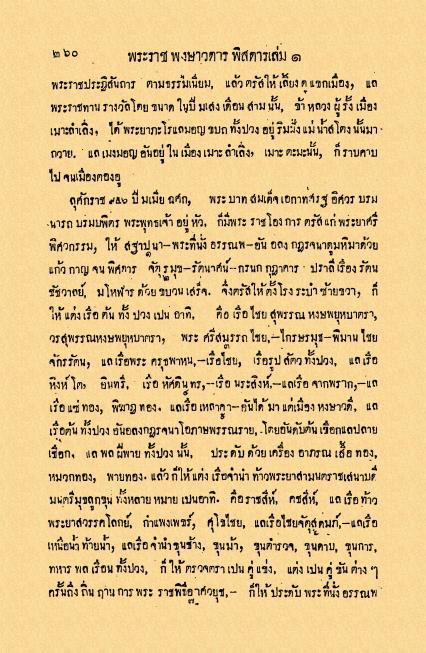 ๒๖๐ พระราช พงษาวดาร พิสดารเล่ม ๑
พระราชประฏิสันการ ตามธรรมเนียม, แล้ว ตรัสให้ เลี้ยง ดู แขกเมือง, แล
พระราชทาน รางวัลโดย ขนาด ในปี มเสง เดือน สาม นั้น, ข้า หลวง ผู้ รั้ง เมือง
เมาะลำเลิง, ได้ พระยาภะโรแลมอญ ขบถ ทั้งปวง อยู่ ริมฝั่ง แม่ น้ำสโตงนั้นมา
ถวาย. แล เมงมอญ อันอยู่ ใน เมือง เมาะ ลำเลิง, เมาะ ตะมะนั้น, ก็ ราบคาบ
ไป จนเมืองตองอู
ลุศักราช ๙๕๖ ปี มเมีย ฉศก, พระ บาท สมเด็จ เอกาทศรฐ อิศวร บรม
นารถ บรมบพิตร พระพุทธเจ้า อยู่ หัว, ก็มีพระ ราชโองการ ตรัสแก่ พระยาศรี
พิศวกรรม, ให้ สฐาปนา–พระที่นั่ง อรรณพ–อัน อลง กฎรจนาดูมหิมาด้วย
แก้ว กาญ จน พิศดาร จัตุรมุข–รัตนาศน์–กรนก กูฎาคาร ปราลี เรือง รัตน
ชัชวาลย์, มโหฬาร ด้วย ขบวน เสร็จ. จึงตรัสให้ ตั้งโรง ระบำ ซ้ายขวา, ก็
ให้ แต่ง เรือ ต้น ทั้ง ปวง เปน อาทิ, คือ เรือ ไชย สุพรรณ หงษพยุหบาตรา,
วรสุพรรณหงษพยุหบาตรา, พระ ศรีสมรรถ ไชย,–ไกรษรมุข–พิมาน ไชย
จักรรัตน, แลเรือพระ ครุธพาหน,–เรือไชย, เรือรูป สัตว ทั้งปวง, แล เรือ
สิงห์ โต, อินทรี, เรือ หัศดินทร,–เรือ นรสิงห์,–แลเรือ จากพราก,–แล
เรือ แซ่ ทอง, พิฆาฏ ทอง. แลเรือ เหลาคา–อันได้ มา แต่เมือง หงษาวดี, แล
เรือต้น ทั้งปวง อันอลงกฎรจนาโอภาษพรรณราย,–โดยอันดับต้น เชือกแลปลาย
เชือก. แล พล ฝีพาย ทั้งปวง นั้น, ประ ดับ ด้วย เครื่อง อาภรณ เสื้อ ทอง,
หมวกทอง, พายทอง. แล้ว ก็ให้แต่ง เรือจำนำ ท้าวพระยาสามนตราชเสนาบดี
มนตรีมุขลูกขุน ทั้งหลาย หมาย เปนอาทิ. คือราชสีห์, คชสีห์, แล เรือ ท้าว
พระยาสวรรคโลกย์, กำแพงเพชร์, ศุโขไชย, แลเรือไชยจัตุสดมภ์,–แลเรือ
เหนือน้ำ ท้ายน้ำ, แลเรือ จำนำ ขุนช้าง, ขุนม้า, ขุนตำรวจ, ขุนดาบ, ขุนการ,
ทหาร พล เรือน ทั้งปวง, ก็ ให้ ตรวจตรา เปน คู่ แข่ง, แต่ง เปน คู่ ขัน ต่าง ๆ
ครั้นถึง ถิ่น ฐาน การ พระ ราชพิธีอาศวยุช,– ก็ให้ ประดับ พระ ที่นั่ง อรรณพ